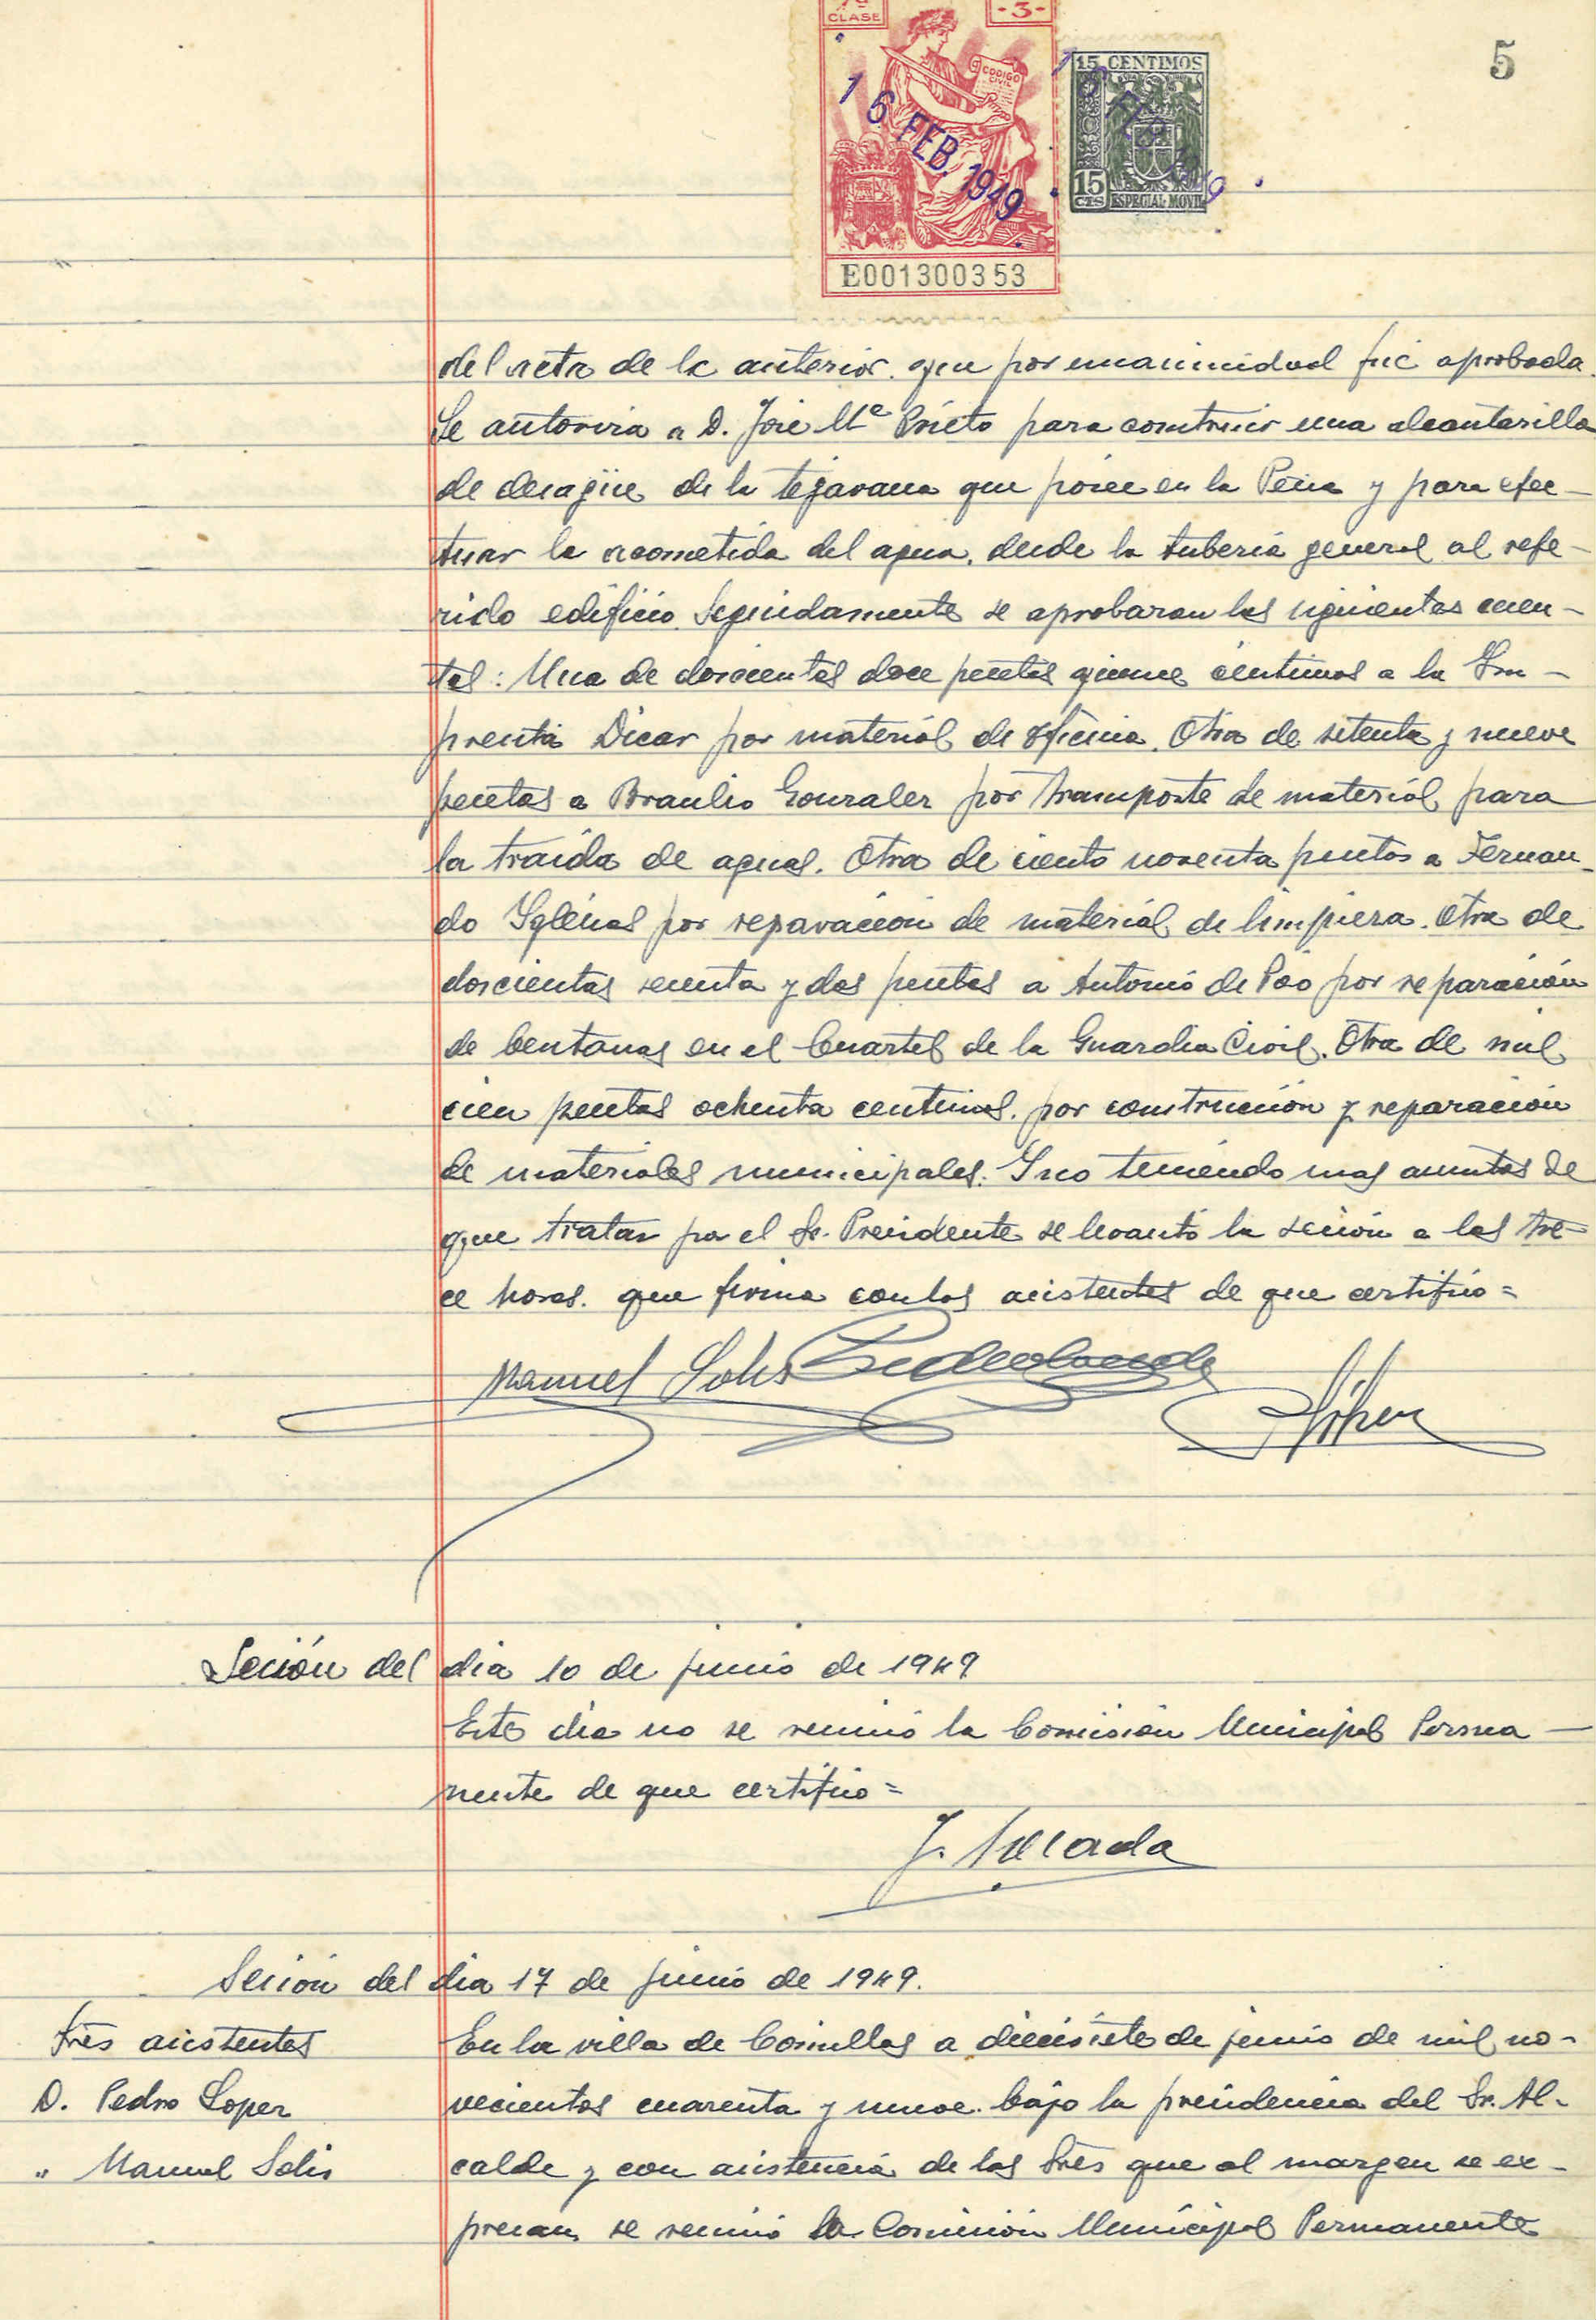 CLASE
-3-
CODIGO CIVIL
16 FEB. 1949
E00130353
15 CENTIMOS
15 CTS
ESPECIAL MOVIL
5
del acta de la anterior. que por unanimidad fué aprobada.
Se autoriza a D. José Mª Prieto para construir una alcantarilla
de desagüe de la tejavana que posee en la Peña y para efec-
tuar la acometida del agua, desde la tubería general al refe-
rido edificio. Seguidamente se aprobaron las siguientes cuen-
tas: Una de doscientas doce pesetas quince centimos a la Im-
prenta Dicar por material de oficina. Otra de setenta y nueve
pesetas a Braulio Gonzalez por transporte de material para
la traida de aguas. Otra de ciento noventa pesetas a Fernan-
do Iglesias por reparación de material de limpieza. Otra de
doscientas sesenta y dos pesetas a Antonio de Poo por reparación
de bentanas en el Cuartel de la Guardia Civil. Otra de mil
cien pesetas ochenta centimos. por construcción y reparación
de materiales municipales. Y no teniendo mas asuntos de
que tratar por el Sr. Presidente se levantó la sesión a las tre-
ce horas. que firma con los asistentes de que certifico=
Manuel Solis
Sesión del dia 10 de junio de 1949
Este dia no se reunió la Comisión Municipal Perma-
nente de que certifico=
Sesión del dia 17 de junio de 1949.
Sres asistentes
D. Pedro Lopez
" Manuel Solis
En la villa de Comillas a diecisiete de junio de mil no-
vecientos cuarenta y nueve. bajo la presidencia del Sr. Al-
calde y con asistencia de los Sres que al margen se ex-
presan, se reunió la Comisión Municipal Permanente